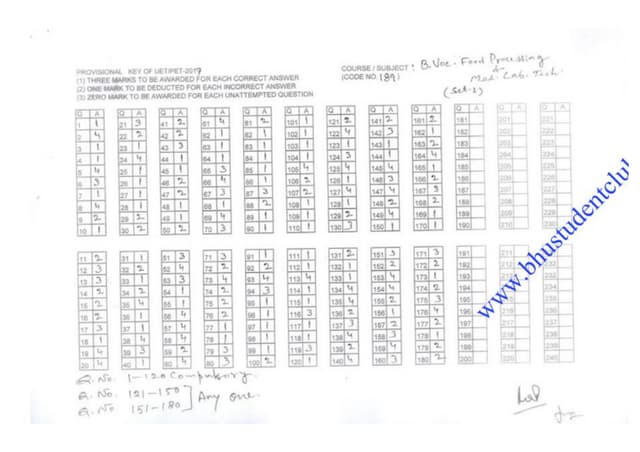 PROVISIONAL KEY OF UET/PET-2017
COURSE / SUBJECT : B.Voc. Food Processing
&
(1) THREE MARKS TO BE AWARDED FOR EACH CORRECT ANSWER
(CODE NO. 189) Med. Lab. Tech.
(2) ONE MARK TO BE DEDUCTED FOR EACH INCORRECT ANSWER
(Set-1)
(3) ZERO MARK TO BE AWARDED FOR EACH UNATTEMPTED QUESTION
Q A Q A Q A Q A Q A Q A Q A Q A Q A Q A Q A Q A
1 1 21 3 41 2 61 4 81 2 101 1 121 2 141 2 161 2 181 201 221
2 4 22 2 42 2 62 1 82 1 102 1 122 4 142 3 162 1 182 202 222
3 1 23 1 43 3 63 1 83 1 103 1 123 4 143 1 163 2 183 203 223
4 1 24 4 44 1 64 1 84 1 104 1 124 3 144 1 164 4 184 204 224
5 4 25 1 45 1 65 3 85 1 105 4 125 4 145 4 165 4 185 205 225
6 3 26 1 46 2 66 4 86 1 106 2 126 1 146 3 166 2 186 206 226
7 1 27 1 47 2 67 3 87 3 107 2 127 4 147 4 167 3 187 207 227
8 4 28 1 48 1 68 1 88 2 108 1 128 1 148 2 168 2 188 208 228
9 2 29 2 49 1 69 4 89 1 109 1 129 2 149 4 169 1 189 209 229
10 1 30 2 50 2 70 3 90 1 110 1 130 3 150 1 170 1 190 210 230
11 2 31 1 51 3 71 3 91 1 111 1 131 2 151 3 171 3 191 211 231
12 3 32 2 52 4 72 2 92 1 112 1 132 1 152 2 172 2 192 212 232
13 3 33 1 53 3 73 4 93 4 113 4 133 1 153 4 173 1 193 213 233
14 2 34 2 54 1 74 2 94 3 114 1 134 4 154 4 174 4 194 214 234
15 2 35 4 55 1 75 2 95 1 115 1 135 4 155 2 175 3 195 215 235
16 2 36 1 56 1 76 2 96 1 116 3 136 2 156 1 176 4 196 216 236
17 3 37 1 57 4 77 1 97 1 117 1 137 3 157 2 177 1 197 217 237
18 1 38 4 58 4 78 1 98 1 118 1 138 2 158 2 178 1 198 218 238
19 4 39 3 59 2 79 3 99 1 119 3 139 2 159 4 179 2 199 219 239
20 4 40 1 60 4 80 3 100 2 120 1 140 4 160 3 180 2 200 220 240
Q. No. 1-120 Compulsory.
Q. No. 121-150
Q. No. 151-180 Any one.
www.bhustudentclub